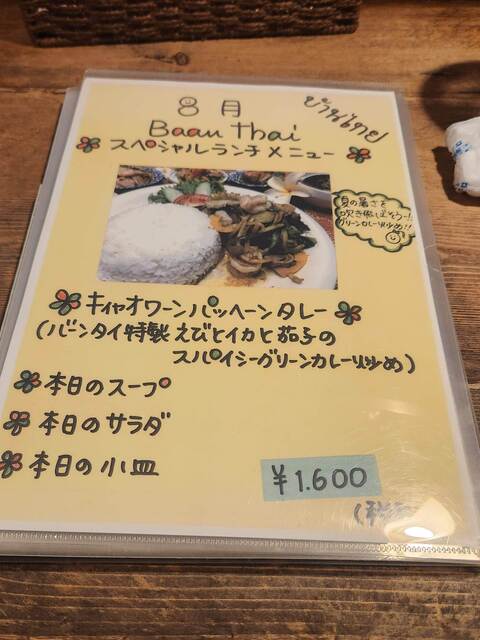 8月
บ้านไทย
Baan thai
スペシャルランチメニュー
夏の暑さを
吹き飛ばそう〜!!
グリーンカレー炒め!!
キャオワーンパッヘーンタレー
(バンタイ特製 えびとイカと茄子の
スパイシーグリーンカレー炒め)
本日のスープ
本日のサラダ
本日の小皿
¥1.600